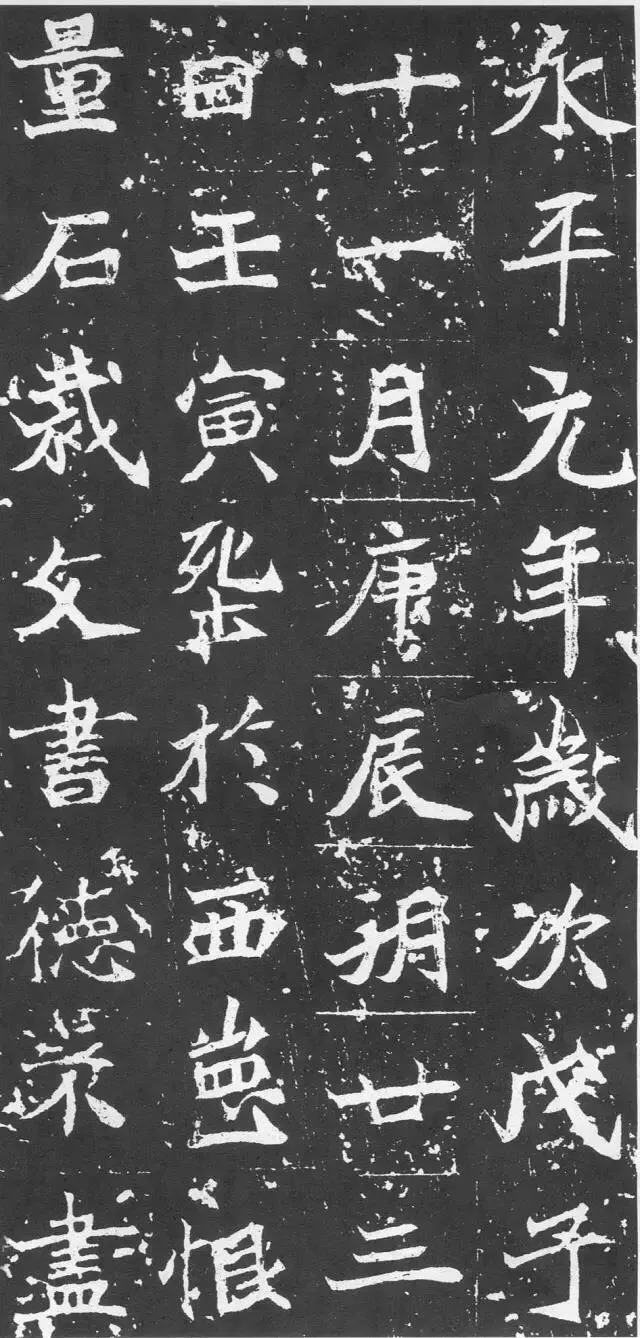 永平元年歲次戊子
十一月庚辰朔廿三
日壬寅葬於西崗恨
量石裁文書德盡